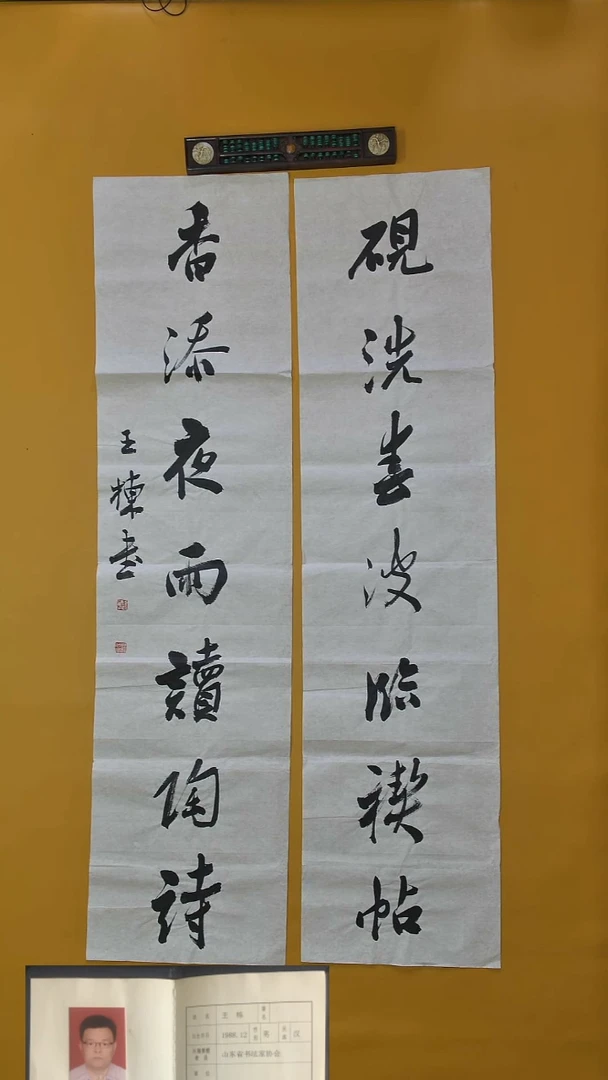 硯洗春波臨禊帖
香添夜雨讀陶詩
王棟書
姓名 王栋
1988.12 性别 男 汉
山东省书法家协会